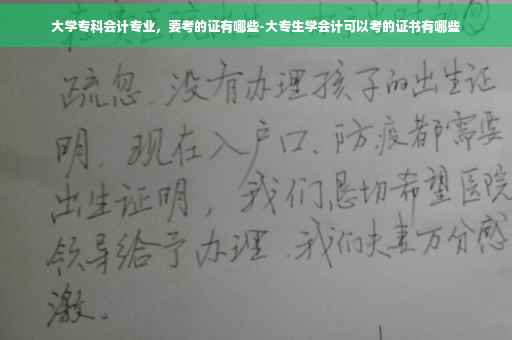 大学专科会计专业，要考的证有哪些-大专生学会计可以考的证书有哪些
疏忽、没有办理孩子的出生证
明、现在入户口、防疫都需要
出生证明，我们恳切希望医院
领导给予办理、我们夫妻万分感
激。